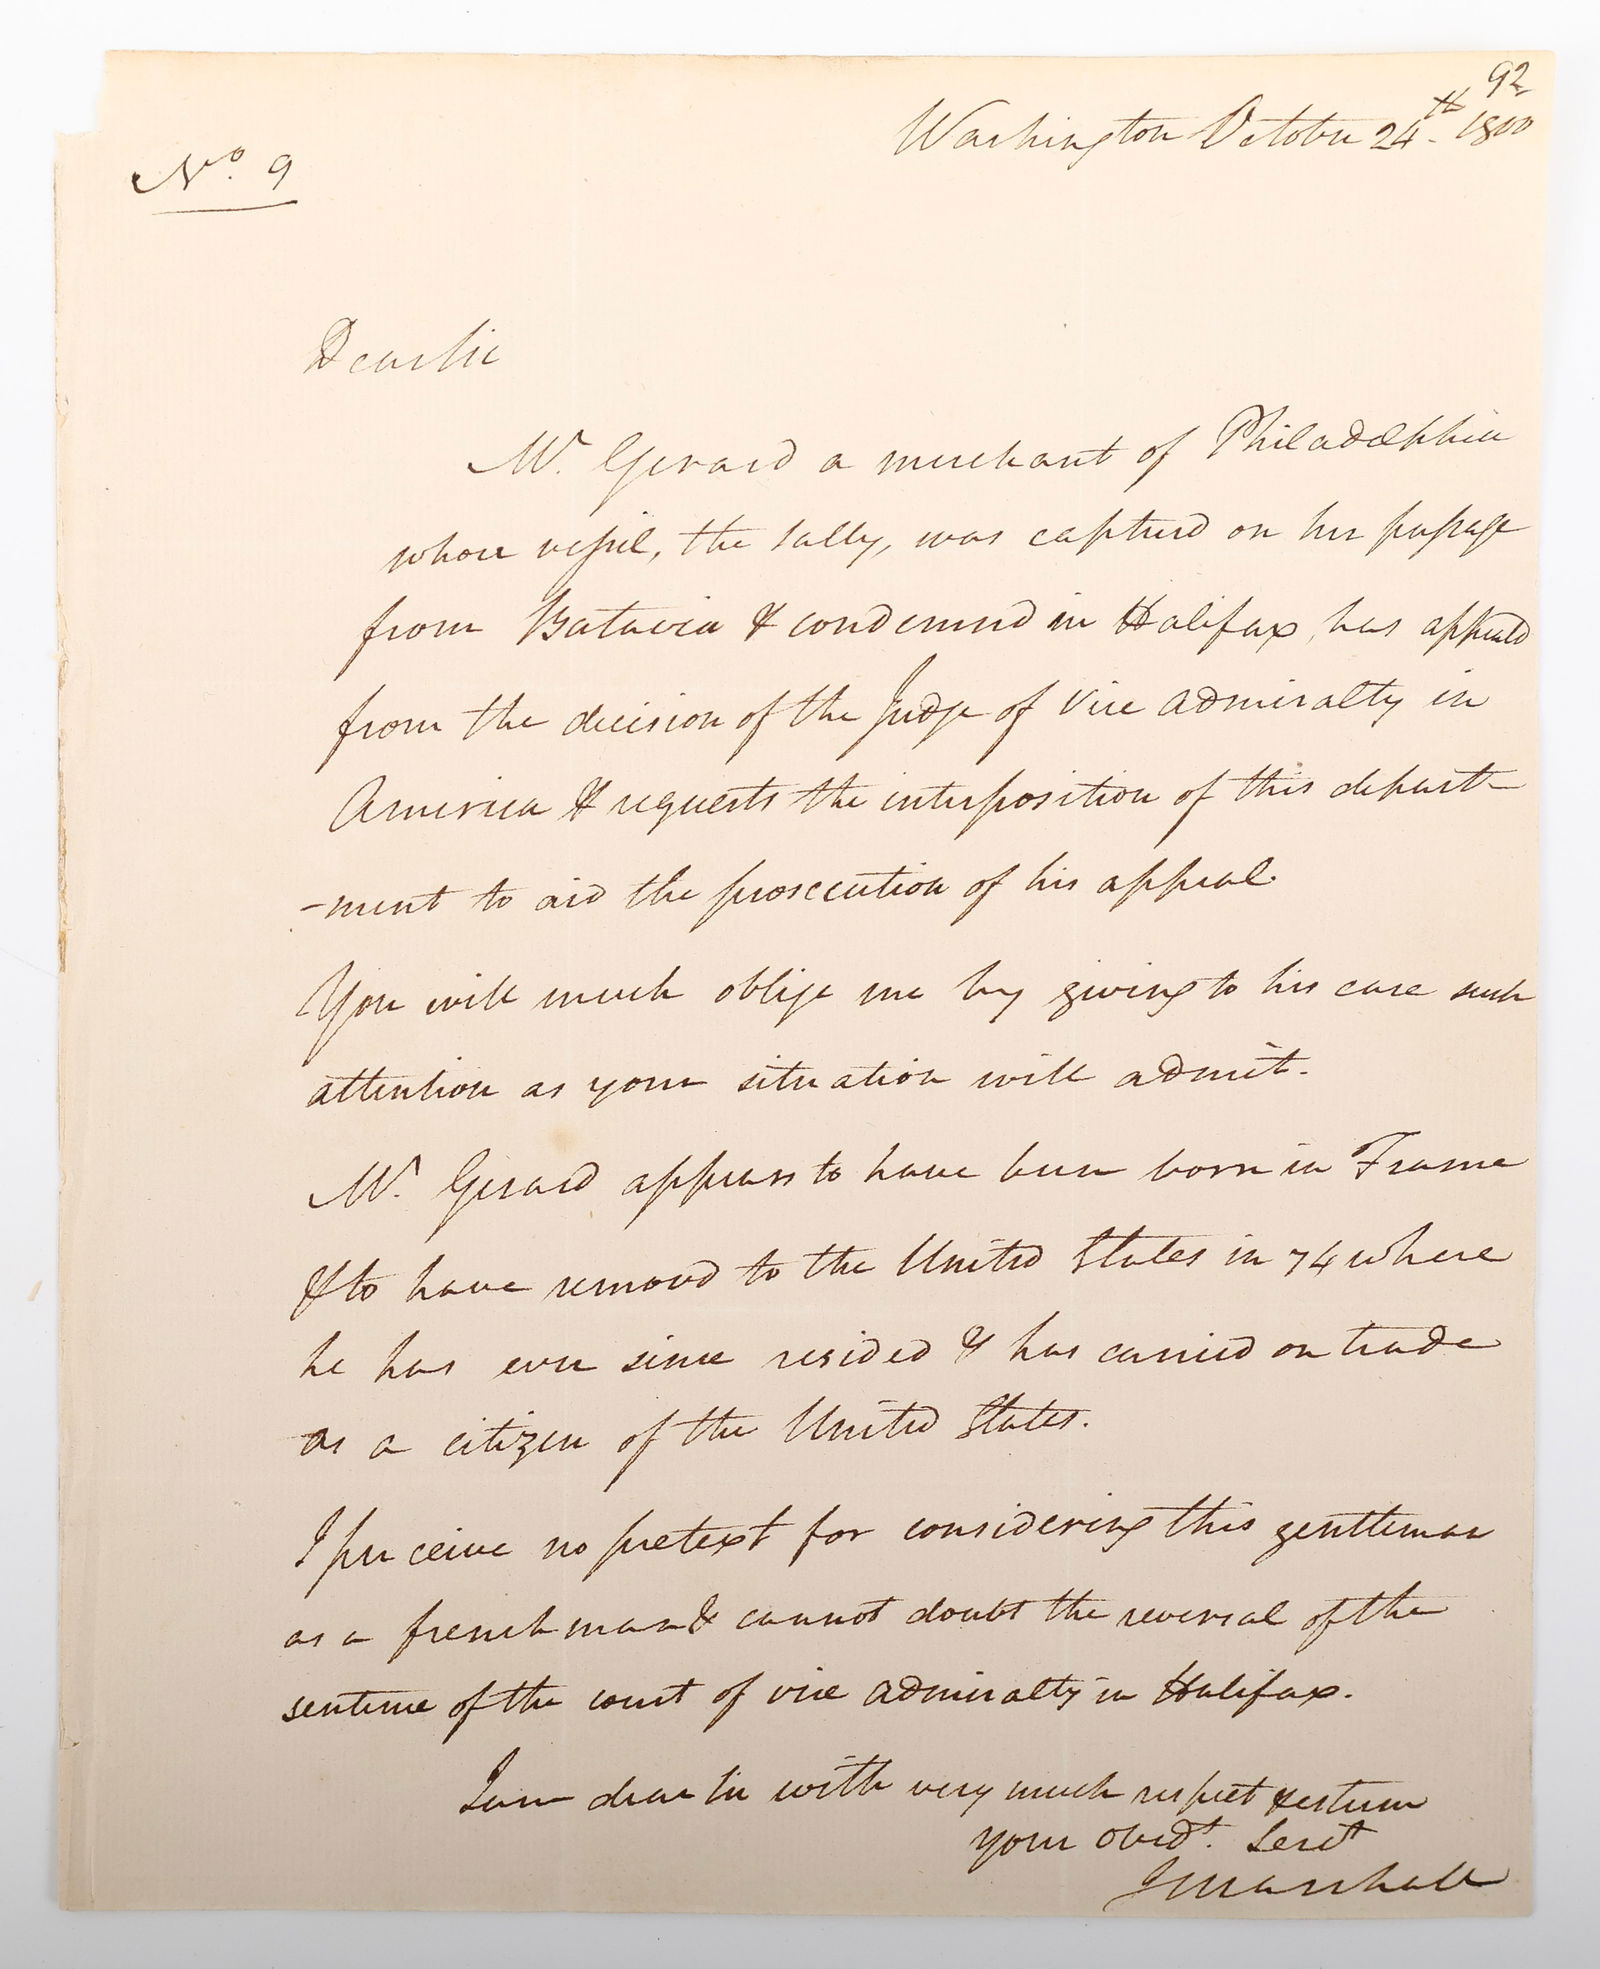 92
Washington October 24th. 1800
No. 9
Dear Sir
Mr. Girard a merchant of Philadelphia
whose vessel, the Sally, was captured on her passage
from Batavia & condemned in Halifax, has appeald
from the decision of the Judge of Vice admiralty in
America & requests the interposition of this depart-
-ment to aid the prosecution of his appeal.
You will much oblige me by giving to his case such
attention as your situation will admit.
Mr. Girard appears to have been born in France
& to have removd to the United States in 74 where
he has ever since resided & has carried on trade
as a citizen of the United States.
I perceive no pretext for considering this gentleman
as a frenchman & cannot doubt the reversal of the
sentence of the court of vice admiralty in Halifax.
I am dear Sir with very much respect & esteem
your Obedt. Servt
J Marshall